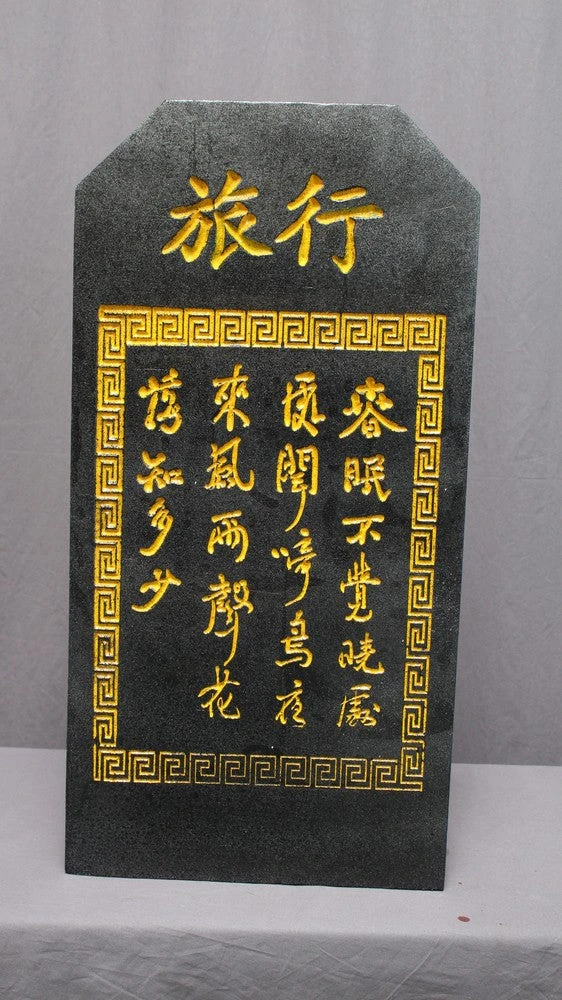 旅行
春眠不覺曉處
處聞啼鳥夜
來風雨聲花
落知多少